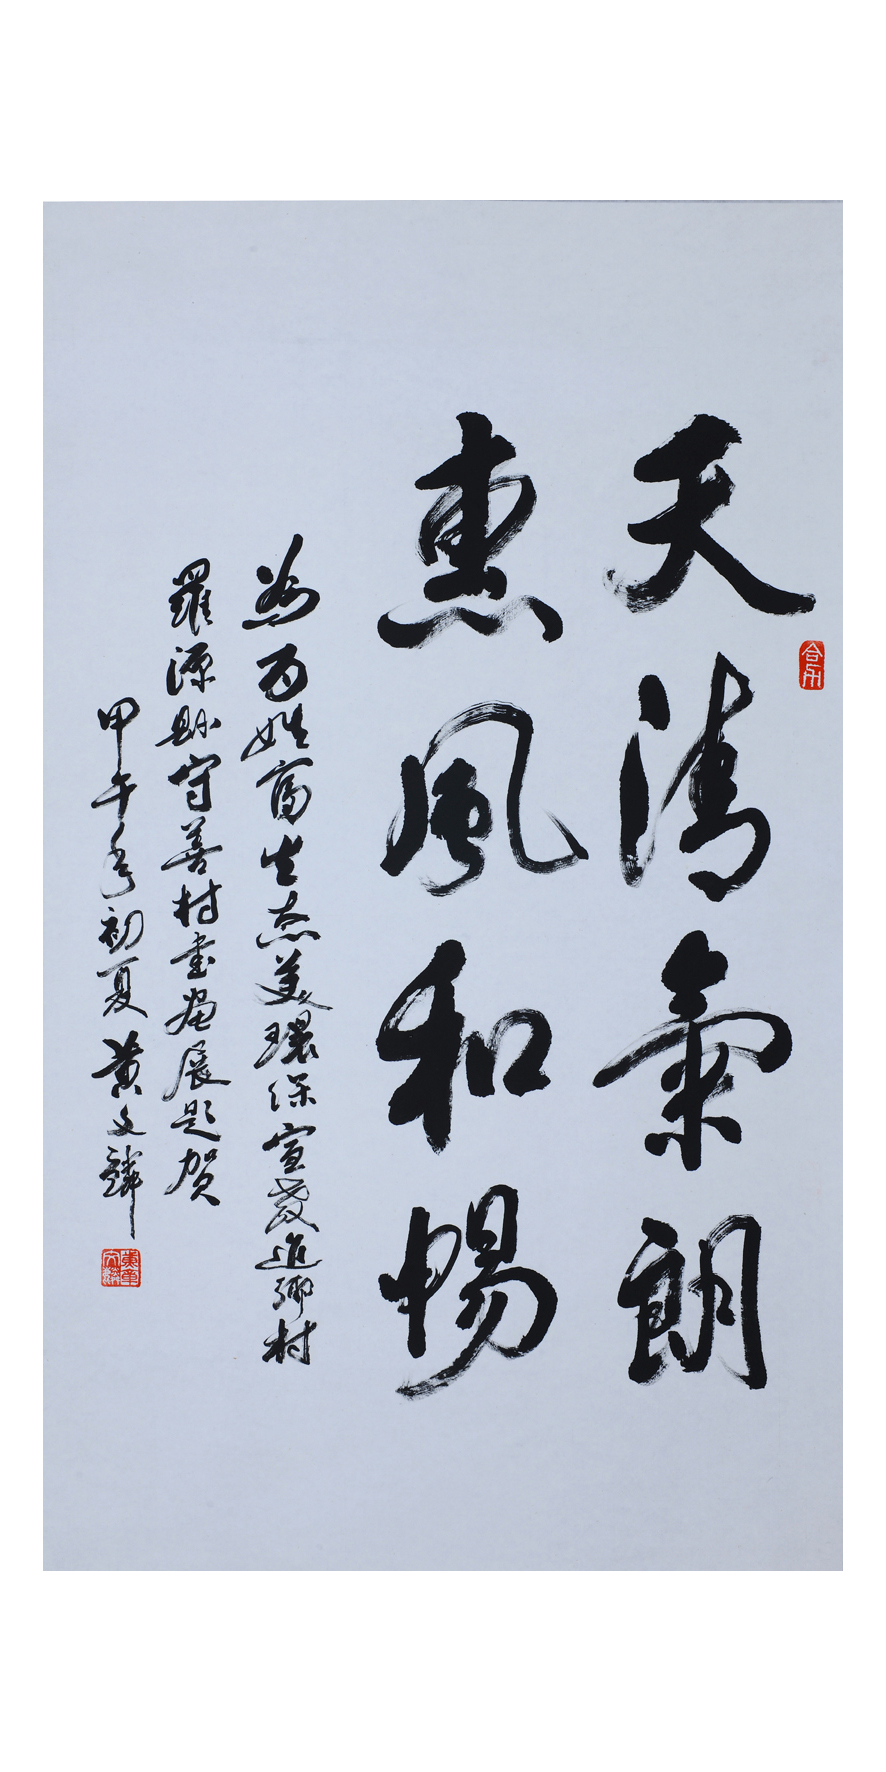 天清氣朗
惠風和暢
為百姓富生态美環保宣教進鄉村
羅源縣守善村書畫展題賀
甲午年初夏黄文麟